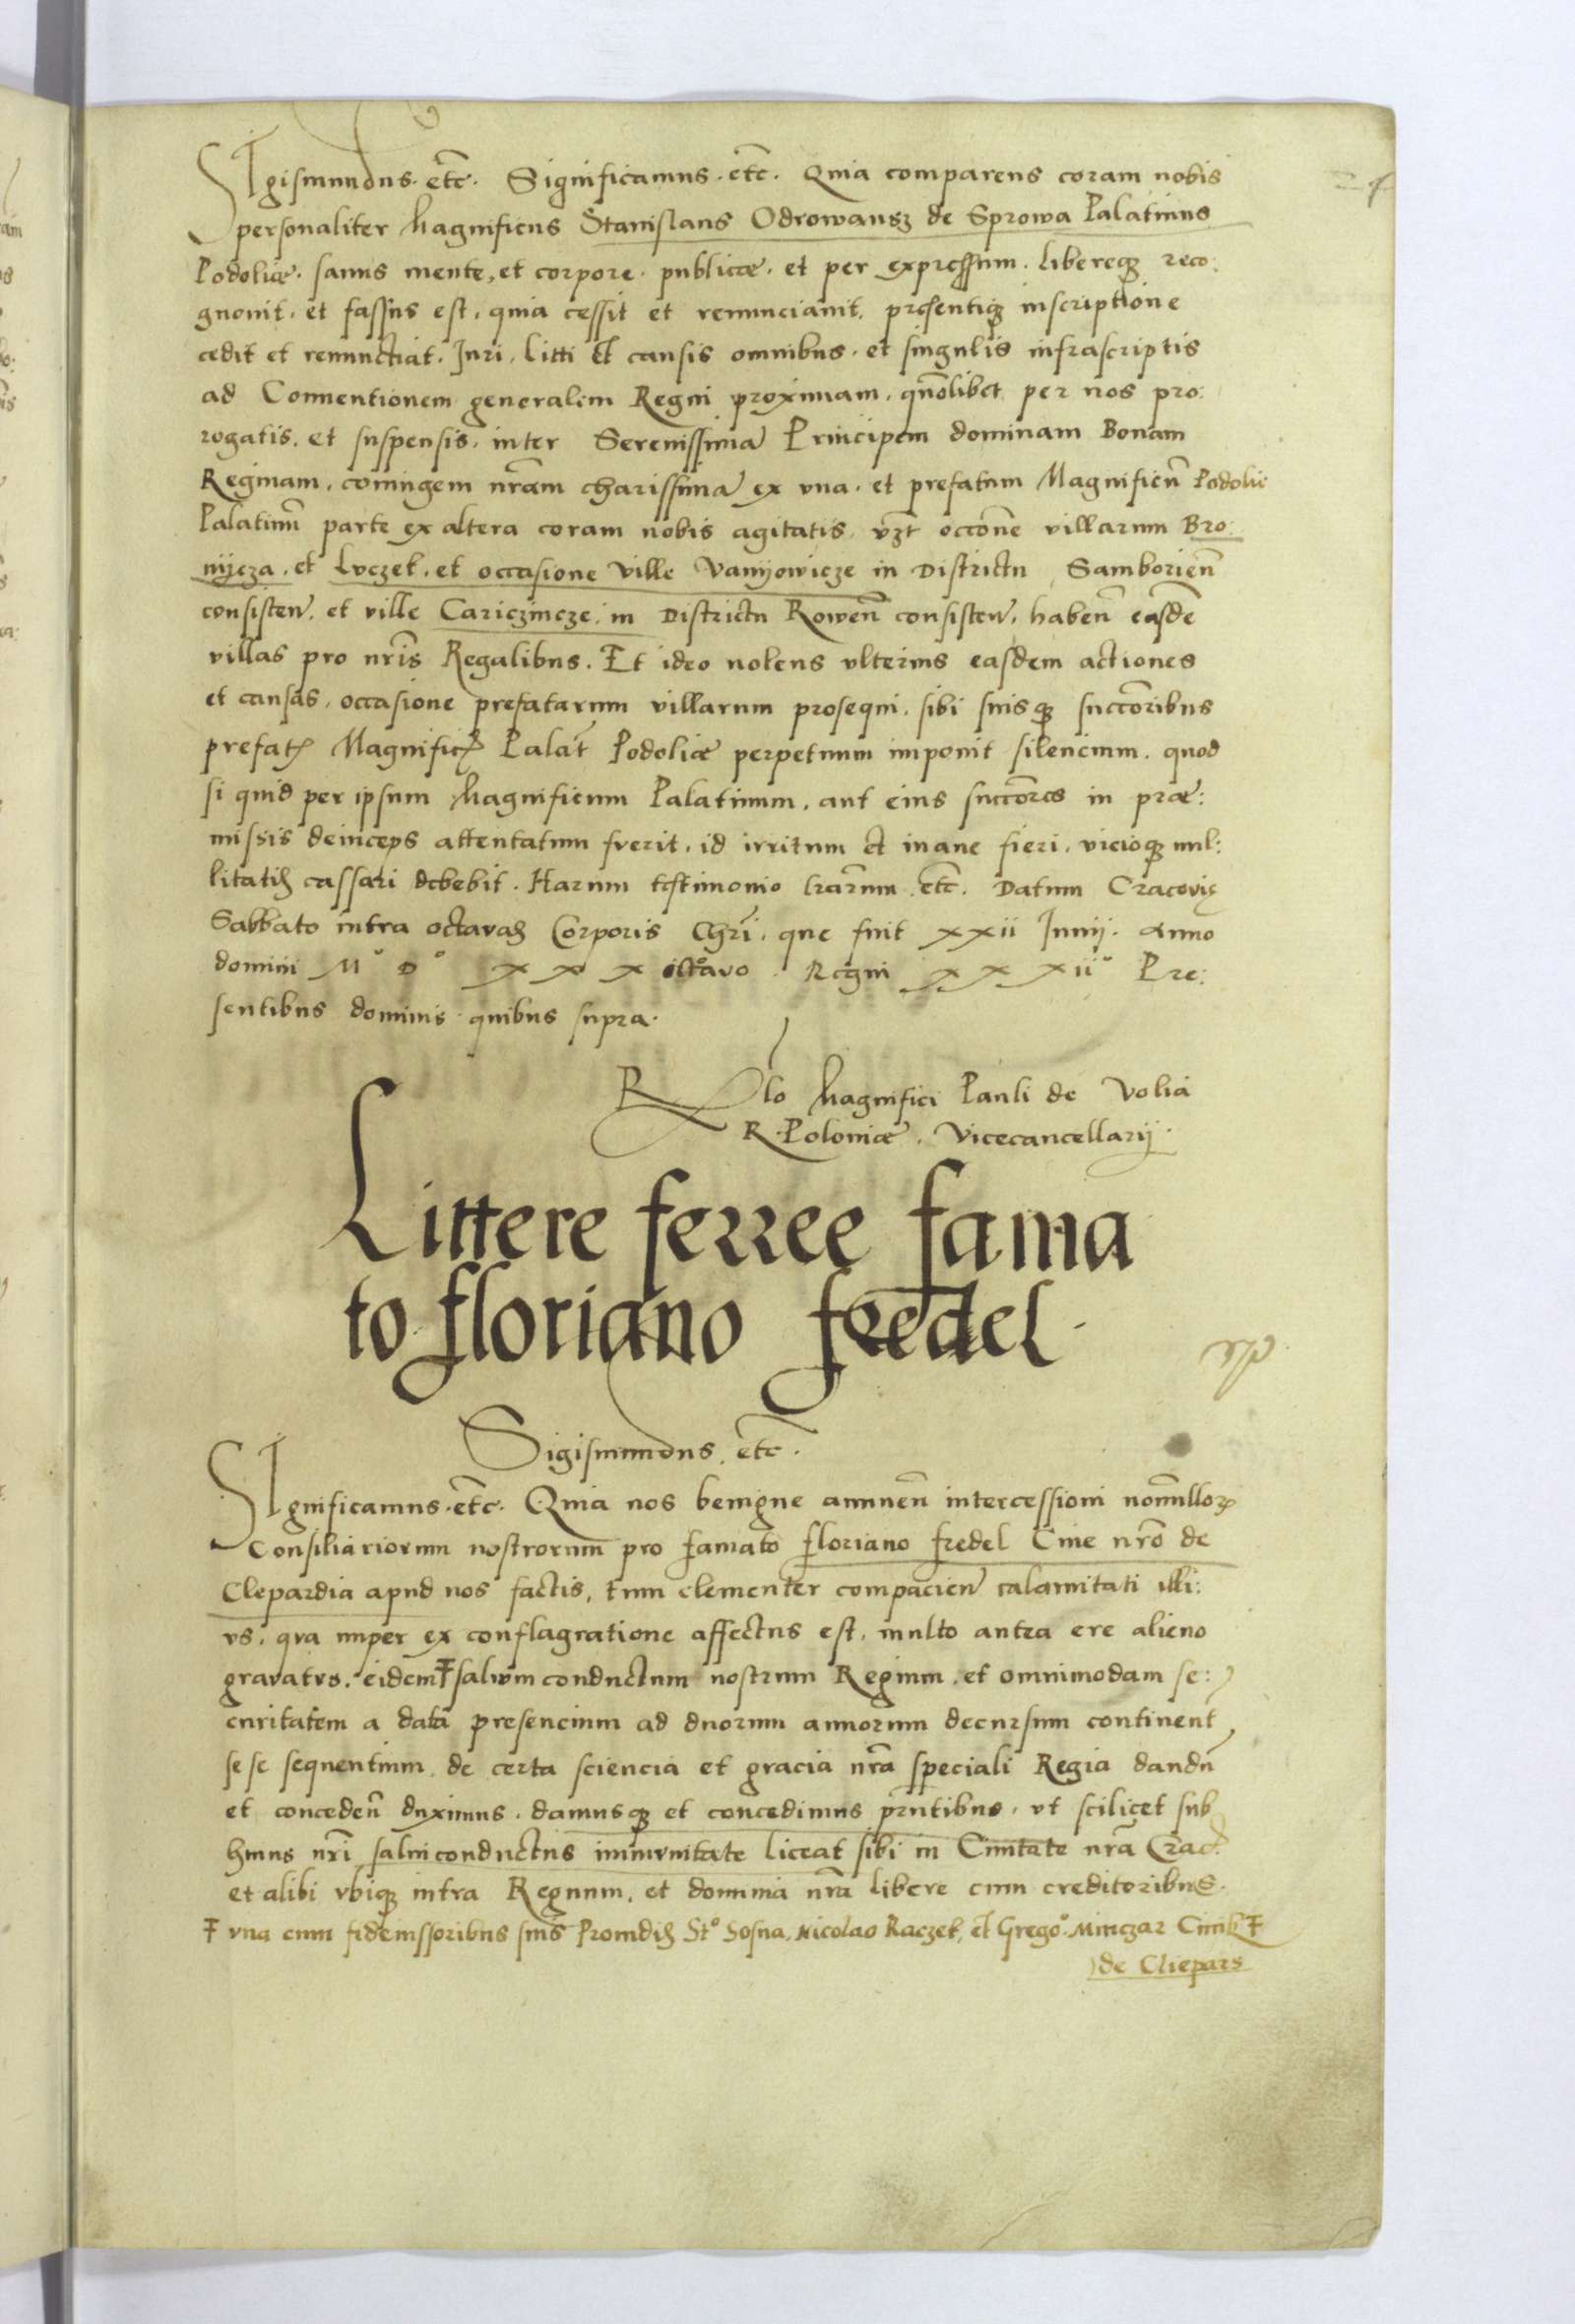 SIgismundus. etc. Significamus. etc. Quia comparens coram nobis
personaliter Magnificus Stanislaus Odrowansz de Sprowa Palatinus
Podoliæ. sanus mente, et corpore. publicæ. et per expressum. libereq3 reco:
gnouit. et fassus est, quia cessit et renunciauit, presentiq3 inscriptione
cedit et renunctiat. Juri, Litti et causis omnibus. et singulis infrascriptis
ad Conuentionem generalem Regni proximam, quolibet per nos pro:
rogatis, et suspensis, inter Serenissima Principem dominam Bonam
Reginam, coniugem nram charissima ex vna. et prefatum Magnificu Podolie
Palatinu parte ex altera coram nobis agitatis, vzt occone villarum Bro:
nycza. et Lvczek. et occasione ville Vanyowicze in Districtu Samborien
consisten, et ville Cariczincze. in Districtu Rowen consisten, haben easde
villas pro nris Regalibus. Et ideo nolens vlterius easdem actiones
et causas, occasione prefatarum villarum prosequi, sibi suisq3 succoribus
prefat Magnific Palat Podoliæ perpetuum imponit silencium. quod
si quid per ipsum Magnificum Palatinum, aut eius succores in præ:
missis deinceps attentatum fverit, id irritum et inane fieri, vicioq3 nul:
litatis cassari debebit. Harum testimonio lrarum etc. Datum Cracovię
Sabbato intra octavas Corporis Chri, que fuit xxii Junij. Anno
domini Mo Do x x x octavo. Regni x x xiio Pre:
sentibus dominis quibus supra.
Rlo Magnifici Pauli de Volia
R. Poloniæ. Vicecancellarij.
Littere ferree fama
to floriano fredel.
Sigismundus. etc.
SIgnificamus. etc. Quia nos benigne annuen intercessioni nonnullor
Consiliariorum nostrorum pro famato floriano fredel Ciue nro de
Clepardia apud nos factis, tum clementer compacien calamitati illi:
vs, qva nuper ex conflagratione affectus est, multo antea ere alieno
gravatvs, eidem Ŧ salvum conductum nostrum Regium, et omnimodam se:
curitatem a data presencium ad duorum annorum decursum continent
se se sequentium, de certa sciencia et gracia nra speciali Regia dandu
et conceden duximus, damusq3 et concedimus prntibus, vt scilicet sub
hmus nri saluiconductus immvnitate liceat sibi in Ciuitate nra Crac
et alibi vbiq3 intra Regnum, et dominia nra libere cum creditoribus.
Ŧ vna cum fideiussoribus suis Prouidis Sto Sosna, Nicolao Raczek, et Grego. Minczar Ciuib Ŧ
de Cliepars